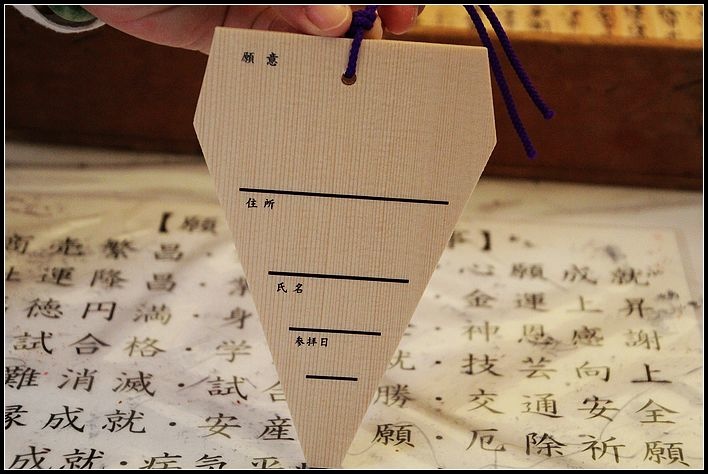 願意
住所
氏名
参拝日
【願
事】
商売繁昌・
心願成就
社運隆昌・
金運上昇
徳円満・身
神恩感謝
試合格・学
・技芸向上
難消滅・試合
勝・交通安全
縁成就・安産
願・厄除祈願
成就・病気平